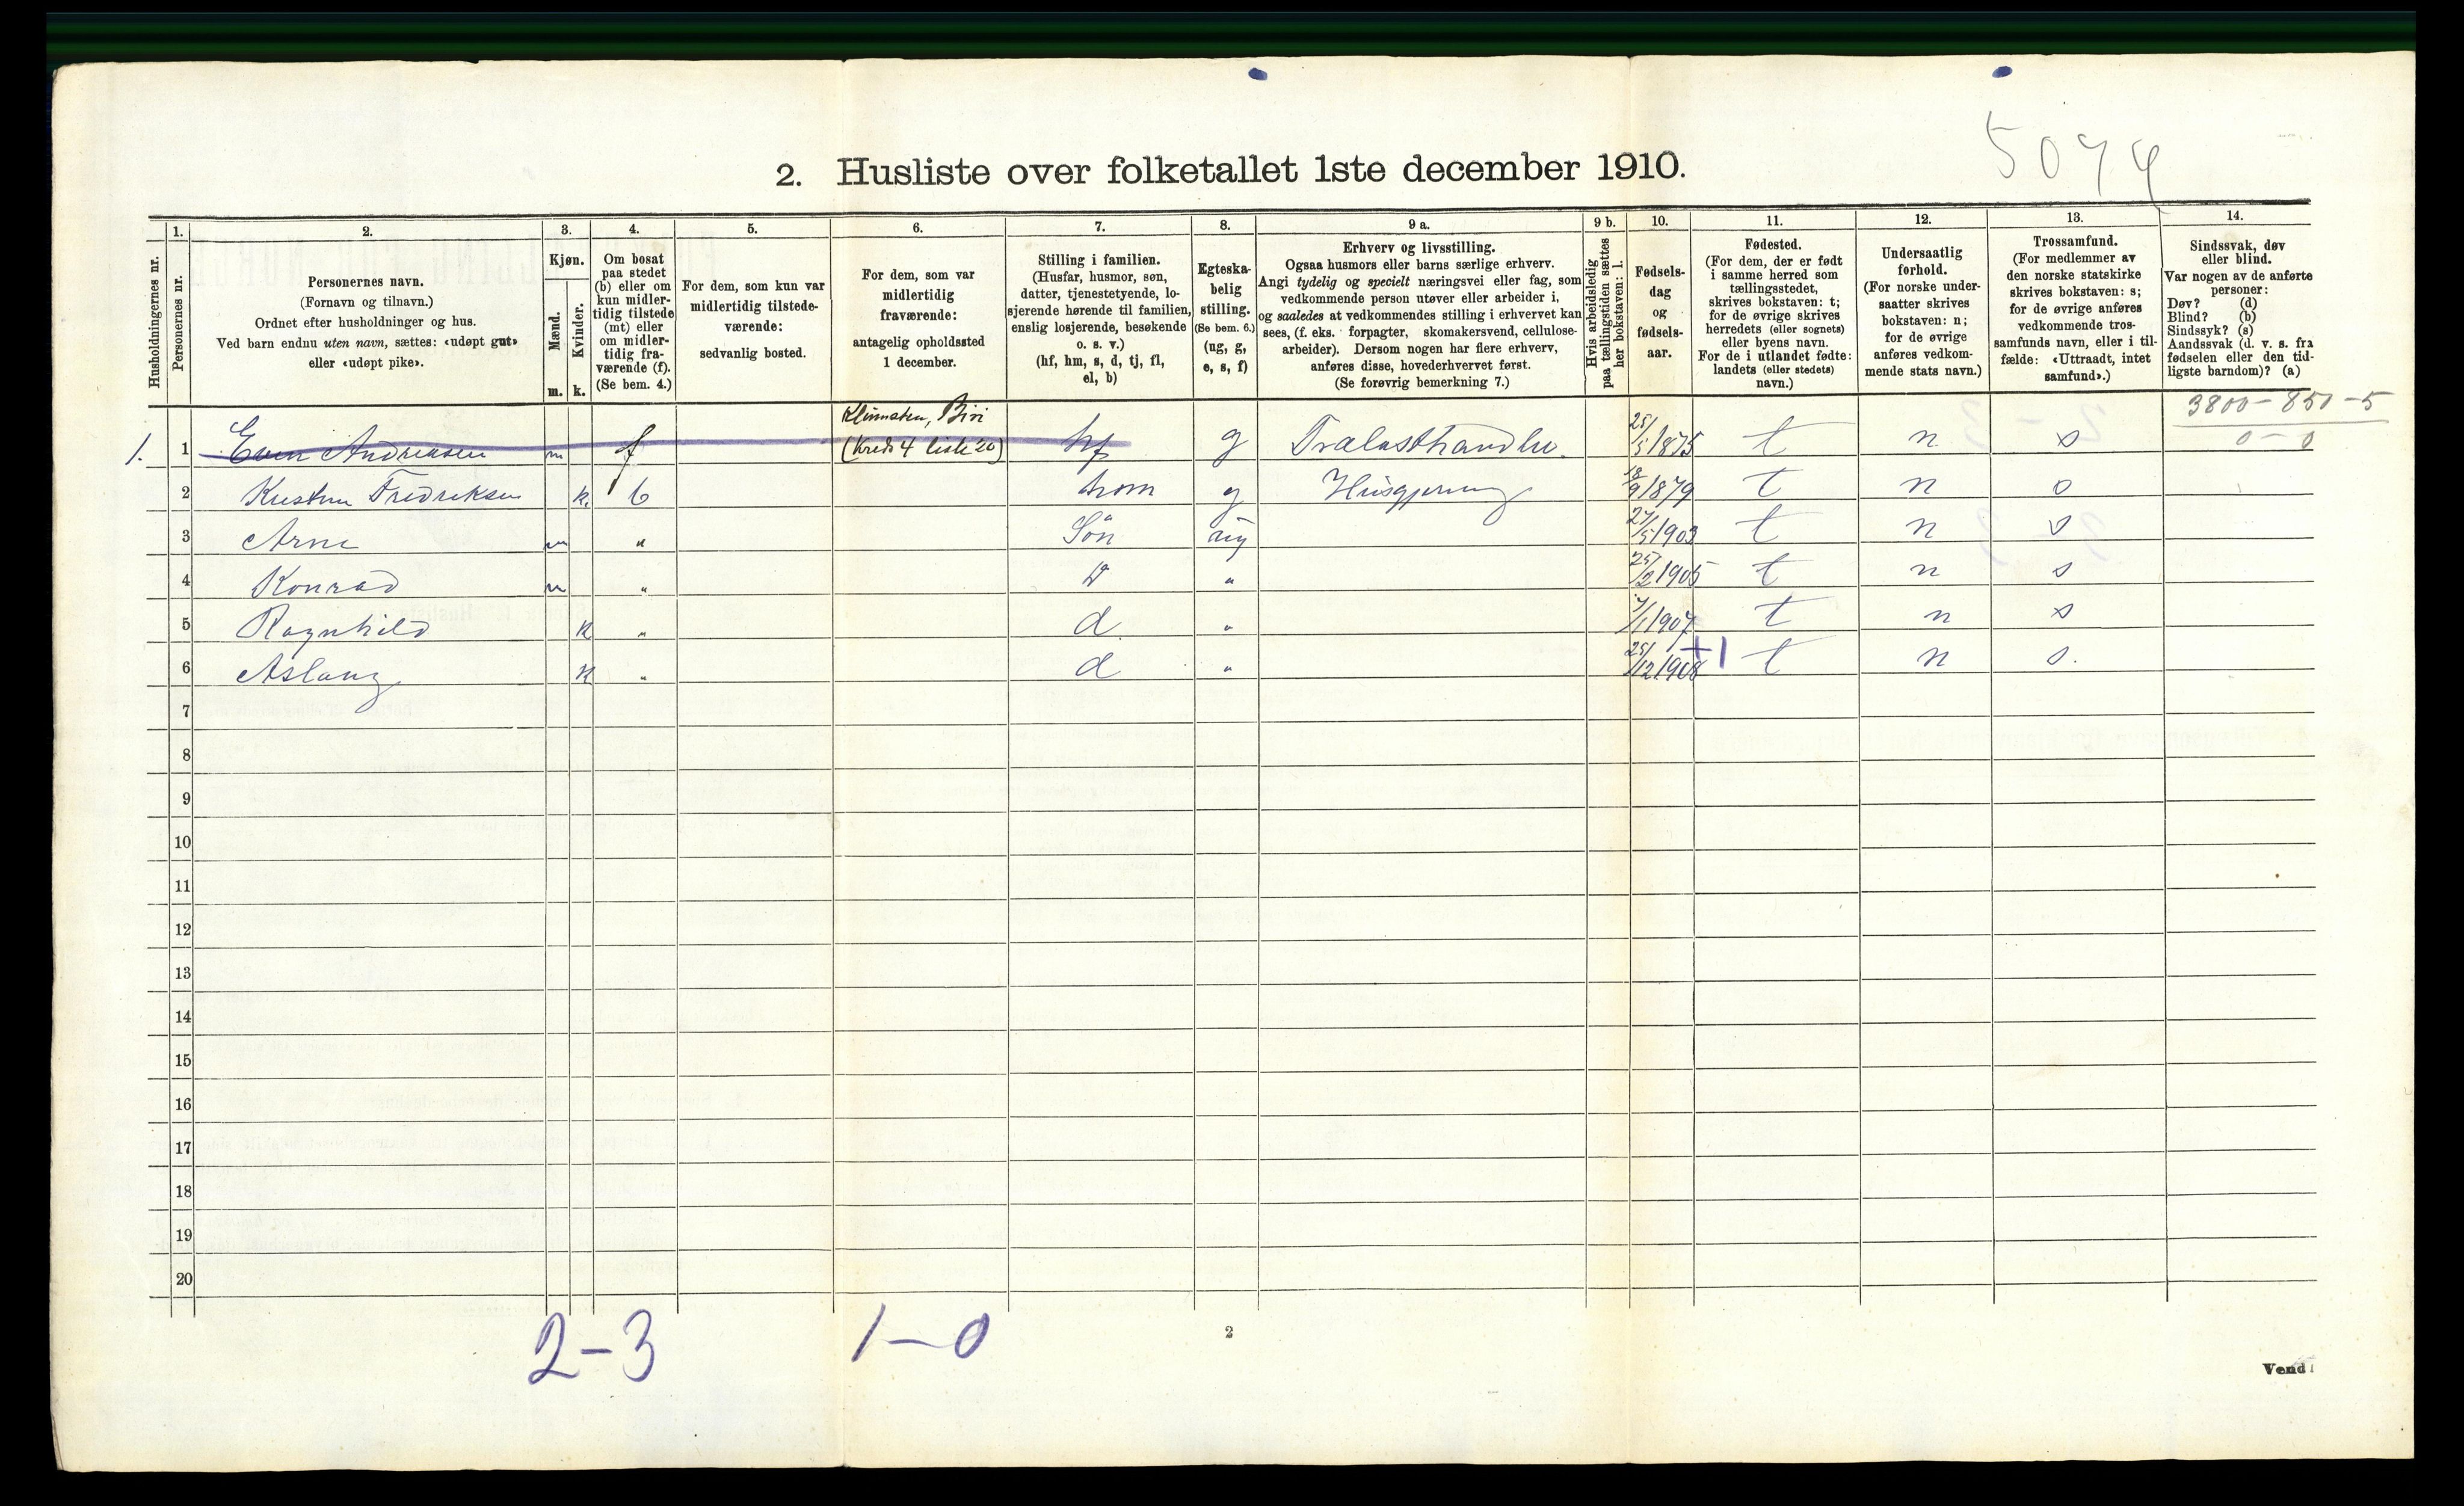 5074
2. Husliste over folketallet 1ste december 1910.
Husholdningernes nr.
1.
Personernes nr.
2.
Personernes navn.
(Fornavn og tilnavn.)
Ordnet efter husholdninger og hus.
Ved barn endnu uten navn, sættes: «udøpt gut»
eller «udøpt pike».
3.
Kjøn.
Mænd.
Kvinder.
m. k.
4.
Om bosat
paa stedet
(b) eller om
kun midler-
tidig tilstede
(mt) eller
om midler-
tidig fra-
værende (f).
(Se bem. 4.)
5.
For dem, som kun var
midlertidig tilstede-
værende:
sedvanlig bosted.
6.
For dem, som var
midlertidig
fraværende:
antagelig opholdssted
1 december.
7.
Stilling i familien.
(Husfar, husmor, søn,
datter, tjenestetyende, lo-
sjerende hørende til familien,
enslig losjerende, besøkende
o. s. v.)
(hf, hm, s, d, tj, fl,
el, b)
8.
Egteska-
belig
stilling.
(Se bem. 6.)
(ug, g,
e, s, f)
9 a.
Erhverv og livsstilling.
Ogsaa husmors eller barns særlige erhverv.
Angi tydelig og specielt næringsvei eller fag, som
vedkommende person utøver eller arbeider i,
og saaledes at vedkommendes stilling i erhvervet kan
sees, (f. eks. forpagter, skomakersvend, cellulose-
arbeider). Dersom nogen har flere erhverv,
anføres disse, hovederhvervet først.
(Se forøvrig bemerkning 7.)
9 b.
Hvis arbeidsledig
paa tællingstiden sættes
her bokstaven: l.
10.
Fødsels-
dag
og
fødsels-
aar.
11.
Fødested.
(For dem, der er født
i samme herred som
tællingsstedet,
skrives bokstaven: t;
for de øvrige skrives
herredets (eller sognets)
eller byens navn.
For de i utlandet fødte:
landets (eller stedets)
navn.)
12.
Undersaatlig
forhold.
(For norske under-
saatter skrives
bokstaven: n;
for de øvrige
anføres vedkom-
mende stats navn.)
13.
Trossamfund.
(For medlemmer av
den norske statskirke
skrives bokstaven: s;
for de øvrige anføres
vedkommende tros-
samfunds navn, eller i til-
fælde: «Uttraadt, intet
samfund».)
14.
Sindssvak, døv
eller blind.
Var nogen av de anførte
personer:
Døv? (d)
Blind? (b)
Sindssyk? (s)
Aandssvak (d. v. s. fra
fødselen eller den tid-
ligste barndom)? (a)
3800-850-5
0-0
1. 1 Even Andreasen m f (Kreds 4 liste 20) hf g Trælasthandler. 25/5 1875 t n s
2 Fredriksen k. b hom g Husgjerning 18/9 1879 t n s
3 Arne m " Søn ug 27/5 1903 t n s
4 Konrad m " " 25/2 1905 t n s
5 Ragnhild k " d. " 7/1 1907 t n s
6 Aslaug k " d " 25/12 1908 +1 t n s.
7
8
9
10
11
12
13
14
15
16
17
18
19
20
2-3 1-0
2
Vend